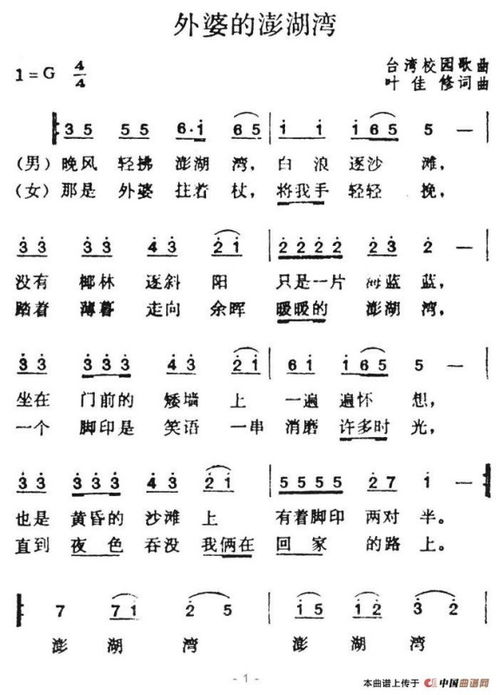 外婆的澎湖湾
1=G 4/4
台湾校园歌曲
叶佳修词曲
3 5 5 5 6·1 6 5 1 1 1 6 5 5 —
(男)晚风 轻拂 澎湖 湾, 白 浪 逐沙 滩,
(女)那是 外婆 拄着 杖, 将我手 轻轻 挽,
3 3 3 3 4 3 2 1 2 2 2 2 3 2 2 —
没有 椰林 逐斜 阳 只是一片 海蓝 蓝,
踏着 薄暮 走向 余晖 暖暖的 澎湖 湾,
3 3 3 3 3 4 3 2 1 1 6 1 1 6 5 5 —
坐在 门前的 矮墙 上 一遍 遍怀 想,
一个 脚印是 笑语 一串 消磨 许多时 光,
3 3 3 3 3 4 3 2 1 5 5 5 5 2 7 1 —
也是 黄昏的 沙滩 上 有着脚印 两对 半。
直到 夜色 吞没 我俩在 回家 的路 上。
7 7 1 2 5 1 5 1 2 3 2 2
澎 湖 湾 澎 湖 湾
- 1 -
本曲谱上传于 中国曲谱网